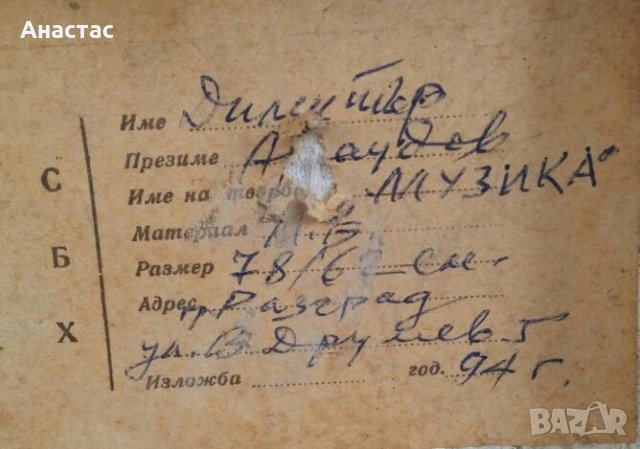 Анастас
Име Димитър
Презиме Арнаудов
Име на творбата „МУЗИКА"
Материал м.б.
Размер 78/62 см.
Адрес гр. Разград
ул. В Друмев 5
Изложба год. 94 г.
С
Б
Х
BAZAR